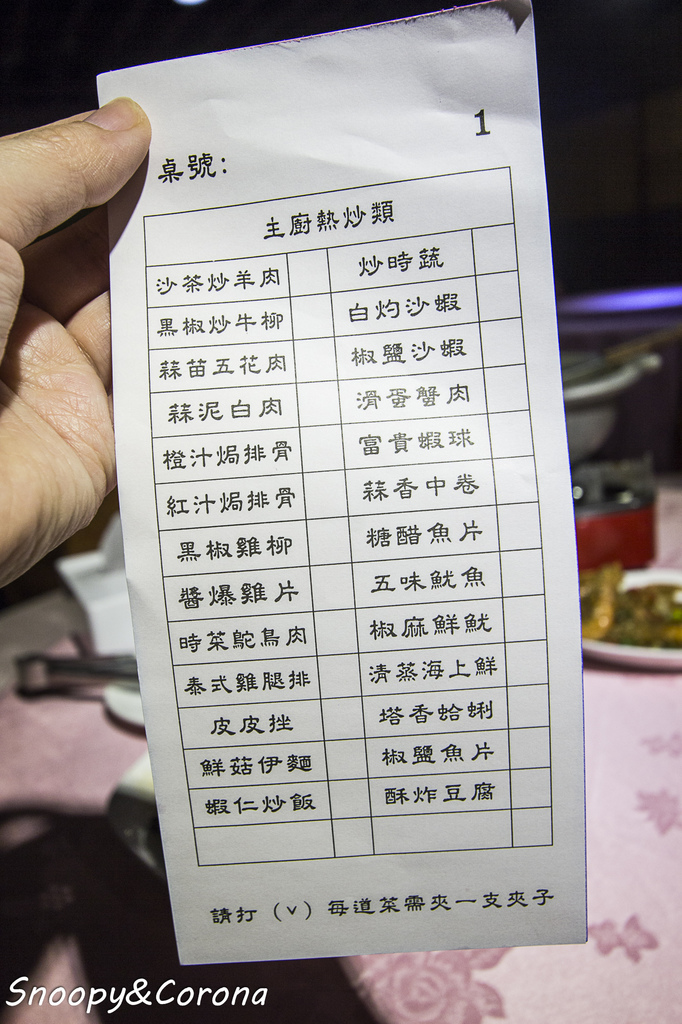 1
桌號:
主廚熱炒類
沙茶炒羊肉 炒時蔬
黑椒炒牛柳 白灼沙蝦
蒜苗五花肉 椒鹽沙蝦
蒜泥白肉 滑蛋蟹肉
橙汁焗排骨 富貴蝦球
紅汁焗排骨 蒜香中卷
黑椒雞柳 糖醋魚片
醬爆雞片 五味魷魚
時菜鴕鳥肉 椒麻鮮魷
泰式雞腿排 清蒸海上鮮
皮皮挫 塔香蛤蜊
鮮菇伊麵 椒鹽魚片
蝦仁炒飯 酥炸豆腐
請打（v）每道菜需夾一支夾子
Snoopy&Corona